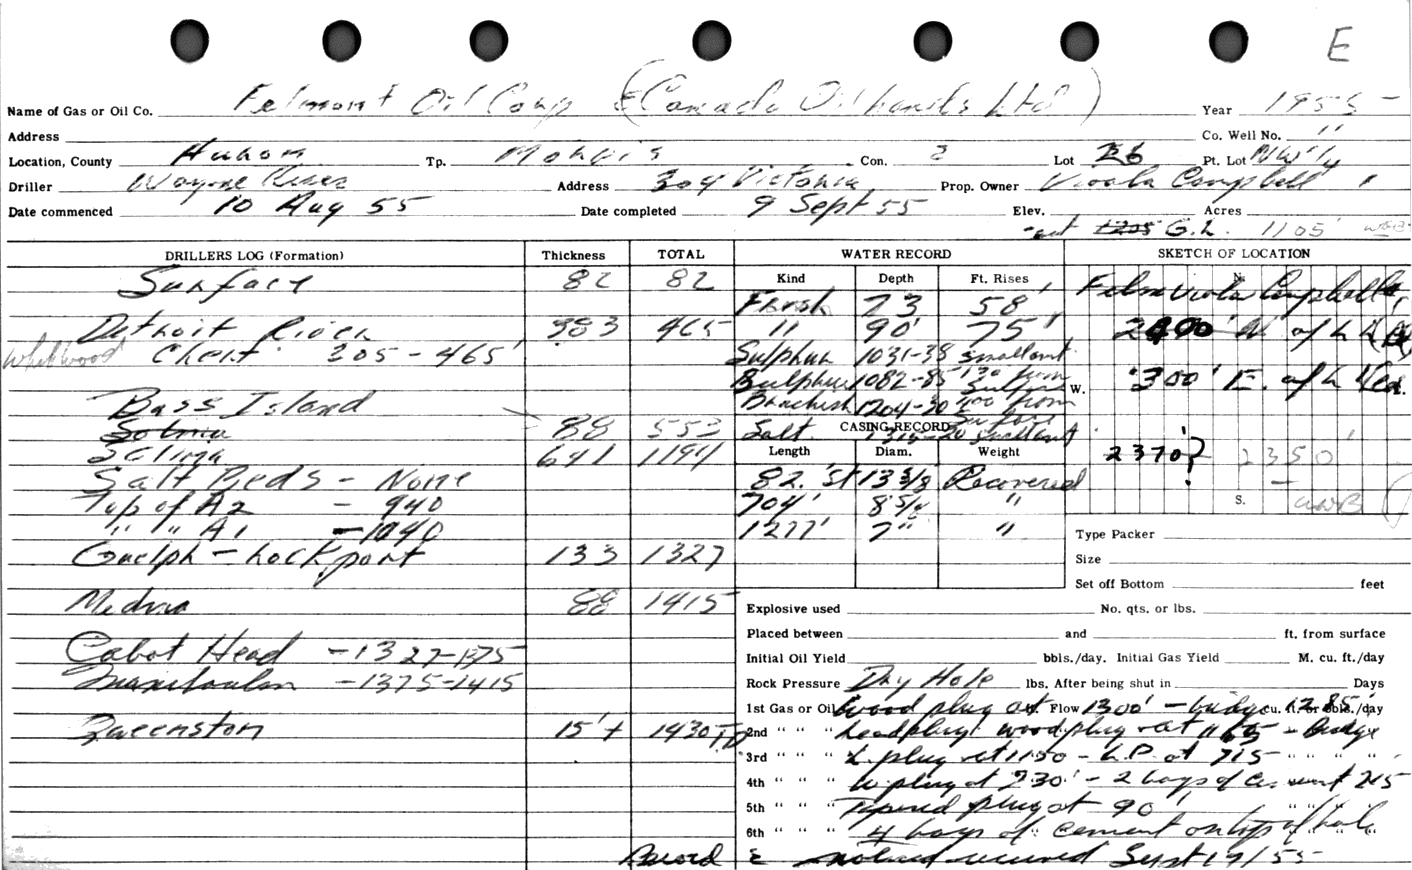 E
Name of Gas or Oil Co. Felmont Oil Corp (Canada Oil Lands Ltd) Year 1955
Address Co. Well No. 11
Location, County Huron Tp. Morris Con. 3 Lot 26 Pt. Lot NW 1/4
Driller Wayne Address 304 Victoria Prop. Owner Viola Campbell
Date commenced 10 Aug 55 Date completed 9 Sept 55 Elev. Acres
est 1205 G.L. 1105'
DRILLERS LOG (Formation) Thickness TOTAL WATER RECORD SKETCH OF LOCATION
Kind Depth Ft. Rises N.
Surface 82 82
Fresh 73 58'
Felm Viola Campbell
Detroit River 383 465 " 90' 75'
Chert 205 - 465'
Sulphur 1031-38 small amt.
Sulphur 1082-85 from
W. 300' E. of
Bass Island Brackish 1204-30 from
Salina 88 553 Salt small amt
CASING RECORD
Salina 641 1194 Length Diam. Weight
2370? 2350'
Salt Beds - None 82' 13 3/8 Recovered
Top of A2 - 940 704' 8 5/8 "
S.
" " A1 - 1040 1277' 7" "
Type Packer
Guelph - Lockport 133 1327
Size
Set off Bottom feet
Medina 88 1415
Explosive used No. qts. or lbs.
Placed between and ft. from surface
Cabot Head - 1327-1375
Initial Oil Yield bbls./day. Initial Gas Yield M. cu. ft./day
Manitoulin - 1375-1415
Rock Pressure Dry Hole lbs. After being shut in Days
1st Gas or Oil Flow cu. ft. or bbls./day
Wood plug at 1300' - bridge 1285'
Queenston 15'+ 1430 TD
2nd " " " Lead plug wood plug at 1165 - Bridge
3rd " " " L. plug at 1150 - L.P. at 715 " " "
4th " " " W plug at 730' - 2 bags of cement 715
5th " " " Tapered plug at 90' " " "
6th " " " 4 bags of cement on top of hole
Record & received Sept 19/55